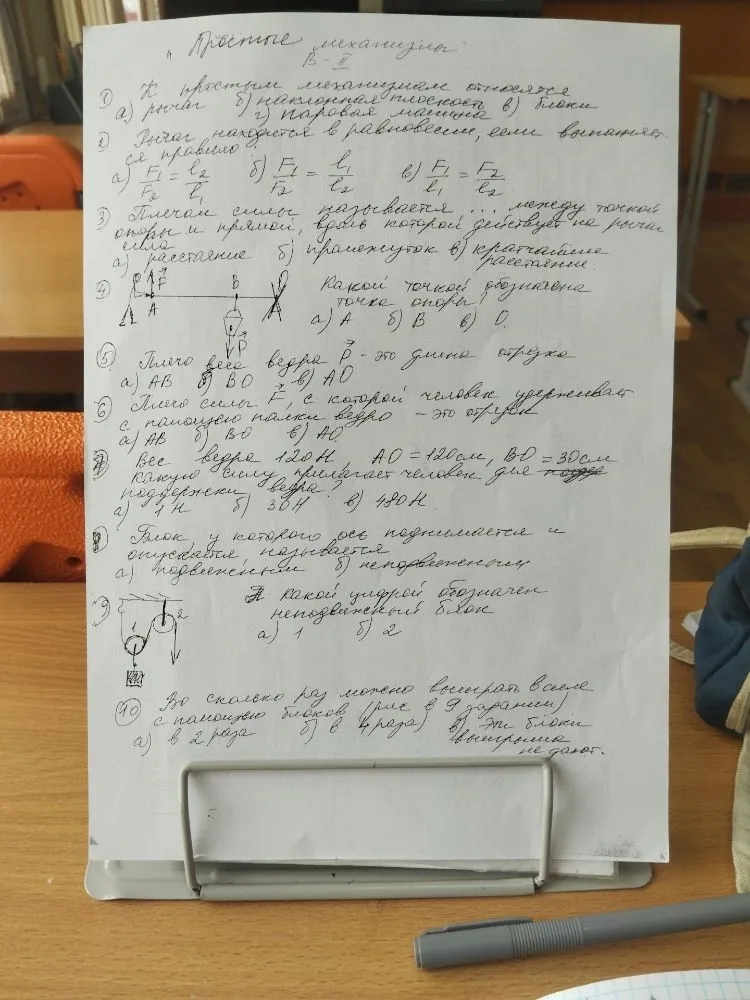 " Простые механизмы
В-II
1 К простым механизмам относятся
а) рычаг б) наклонная плоскость в) блоки
г) паровая машина
2 Рычаг находится в равновесии, если выполняет-
ся правило:
а) F1/F2 = l2/l1 б) F1/F2 = l1/l2 в) F1/l1 = F2/l2
3 Плечом силы называется ... между точкой
опоры и прямой, вдоль которой действует на рычаг
сила
а) расстояние б) промежуток в) кратчайшее
расстояние.
4 F A B O P
Какой точкой обозначена
точка опоры?
а) А б) В в) О.
5 Плечо веса ведра P - это длина отрезка
а) АВ б) ВО в) АО
6 Плечо силы F, с которой человек удерживает
с помощью палки ведро - это отрезок
а) АВ б) ВО в) АО
7 Вес ведра 120Н, АО = 120см, ВО = 30см
какую силу прилагает человек для
поддержки ведра?
а) 1Н б) 30Н в) 480Н.
8 Блок, у которого ось поднимается и
опускается называется
а) подвижным б) неподвижным
9 1 2
какой цифрой обозначен
неподвижный блок
а) 1 б) 2
10 Во сколько раз можно выиграть в силе
с помощью блоков (рис в 9 задании)
а) в 2 раза б) в 4 раза) в) Эти блоки
выигрыша
не дают.